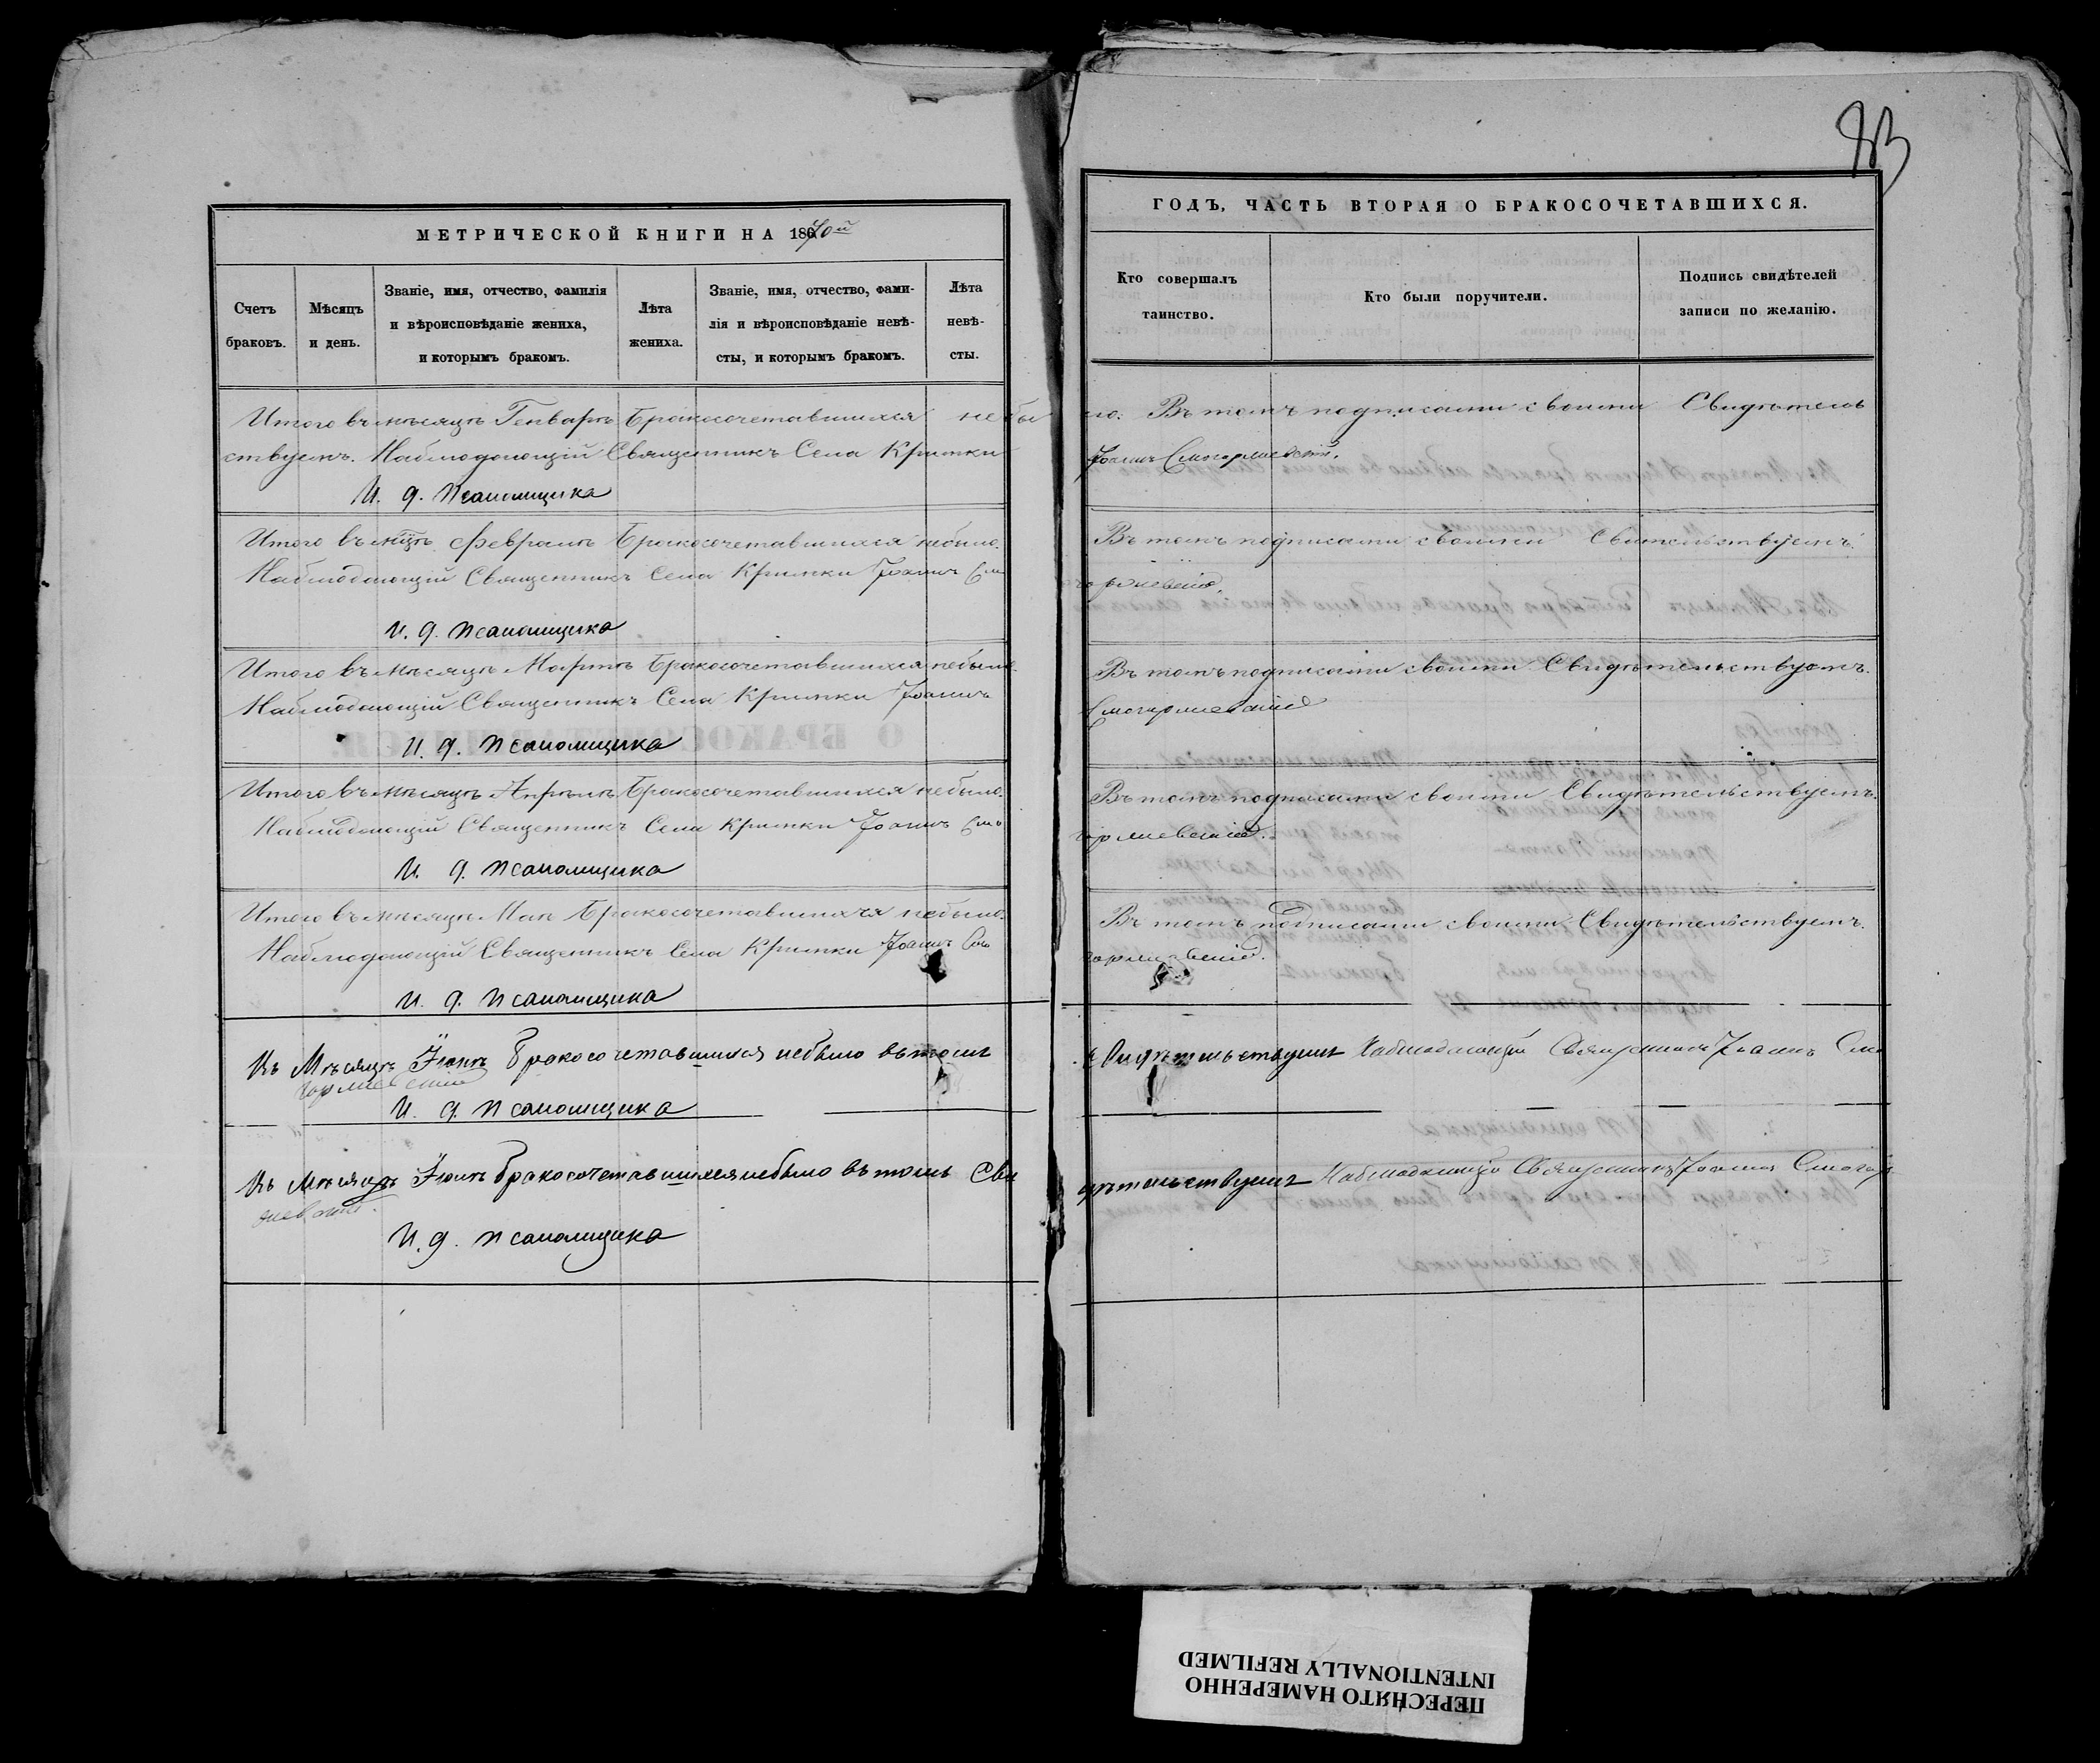 83
МЕТРИЧЕСКОЙ КНИГИ НА 1870й
ГОДЪ, ЧАСТЬ ВТОРАЯ О БРАКОСОЧЕТАВШИХСЯ.
Счетъ браковъ.
Мѣсяцъ и день.
Званіе, имя, отчество, фамилія
и вѣроисповѣданіе жениха,
и которымъ бракомъ.
Лѣта жениха.
Званіе, имя, отчество, фами-
лія и вѣроисповѣданіе невѣ-
сты, и которымъ бракомъ.
Лѣта невѣ-
сты.
Кто совершалъ
таинство.
Кто были поручители.
Подпись свидѣтелей
записи по желанію.
Итого въ мѣсяцѣ Генварѣ Бракосочетавшихся небы
ло. Въ томъ подписами своими Свидѣтель
ствуемъ. Наблюдающій Священникъ Села Кримки
Іоаннъ
И. д. псаломщика
Итого въ мцѣ Февралѣ Бракосочетавшихся небыло.
Въ томъ подписами своими Свительствуемъ.
Наблюдающій Священникъ Села Кримки Іоаннъ См
И. д. псаломщика
Итого въ мѣсяцѣ Мартѣ Бракосочетавшихся небыло.
Въ томъ подписами своими Свидѣтельствуемъ.
Наблюдающій Священникъ Села Кримки Іоаннъ
И. д. псаломщика
Итого въ мѣсяцѣ Апрѣлѣ Бракосочетавшихся небыло.
Въ томъ подписами своими Свидѣтельствуемъ.
Наблюдающій Священникъ Села Кримки Іоаннъ Смо
И. д. псаломщика
Итого въ мѣсяцѣ Маѣ Бракосочетавшихся небыло.
Въ томъ подписами своими Свидѣтельствуемъ.
Наблюдающій Священникъ Села Кримки Іоаннъ Смо
И. д. псаломщика
Въ Мѣсяцѣ Іюнѣ бракосочетавшихся небыло въ томъ
Свидѣтельствуемъ Наблюдающій Священникъ Іоаннъ Смо
И. д. псаломщика
Въ Мѣсяцѣ Іюлѣ бракосочетавшихся небыло въ томъ Сви
дѣтельствуемъ Наблюдающій Священникъ Іоаннъ Смогор
И. д. псаломщика
ПЕРЕСНЯТО НАМЕРЕННО
INTENTIONALLY REFILMED